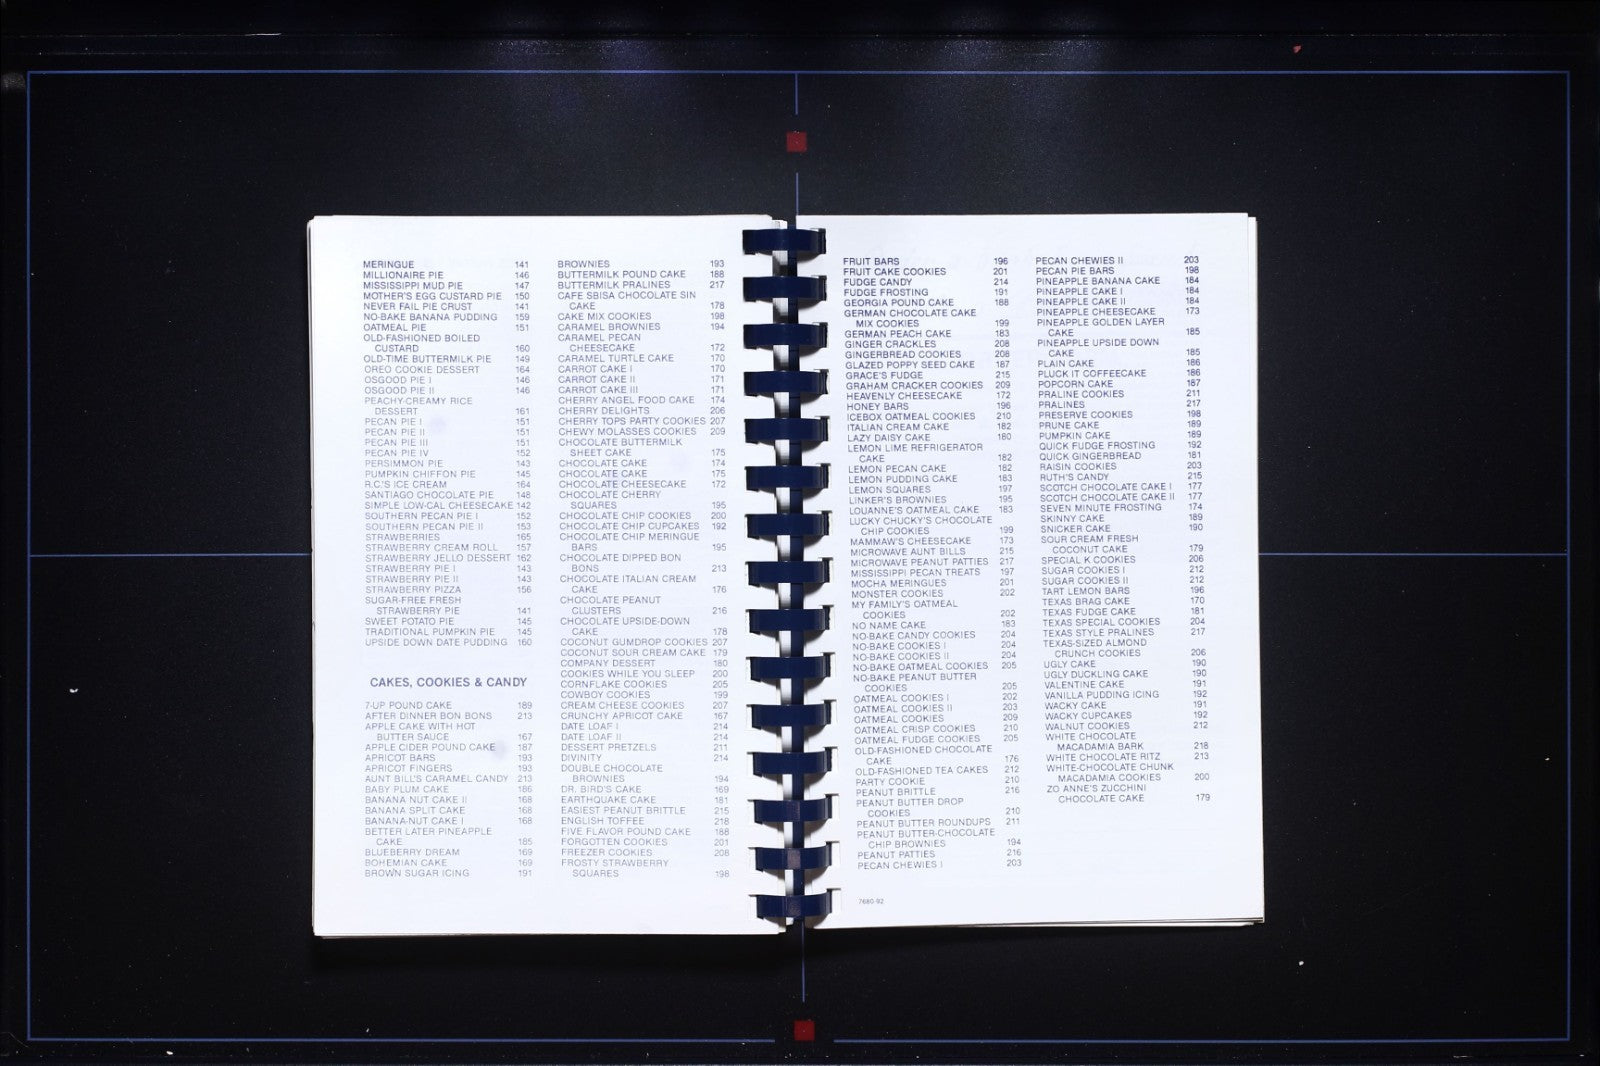 MERINGUE 141
MILLIONAIRE PIE 146
MISSISSIPPI MUD PIE 147
MOTHER'S EGG CUSTARD PIE 150
NEVER FAIL PIE CRUST 141
NO-BAKE BANANA PUDDING 159
OATMEAL PIE 151
OLD-FASHIONED BOILED
CUSTARD 160
OLD-TIME BUTTERMILK PIE 149
OREO COOKIE DESSERT 164
OSGOOD PIE I 146
OSGOOD PIE II 146
PEACHY-CREAMY RICE
DESSERT 161
PECAN PIE I 151
PECAN PIE II 151
PECAN PIE III 151
PECAN PIE IV 152
PERSIMMON PIE 143
PUMPKIN CHIFFON PIE 145
R.C.'S ICE CREAM 164
SANTIAGO CHOCOLATE PIE 148
SIMPLE LOW-CAL CHEESECAKE 142
SOUTHERN PECAN PIE I 152
SOUTHERN PECAN PIE II 153
STRAWBERRIES 165
STRAWBERRY CREAM ROLL 157
STRAWBERRY JELLO DESSERT 162
STRAWBERRY PIE I 143
STRAWBERRY PIE II 143
STRAWBERRY PIZZA 156
SUGAR-FREE FRESH
STRAWBERRY PIE 141
SWEET POTATO PIE 145
TRADITIONAL PUMPKIN PIE 145
UPSIDE DOWN DATE PUDDING 160
CAKES, COOKIES & CANDY
7-UP POUND CAKE 189
AFTER DINNER BON BONS 213
APPLE CAKE WITH HOT
BUTTER SAUCE 167
APPLE CIDER POUND CAKE 187
APRICOT BARS 193
APRICOT FINGERS 193
AUNT BILL'S CARAMEL CANDY 213
BABY PLUM CAKE 186
BANANA NUT CAKE II 168
BANANA SPLIT CAKE 168
BANANA-NUT CAKE I 168
BETTER LATER PINEAPPLE
CAKE 185
BLUEBERRY DREAM 169
BOHEMIAN CAKE 169
BROWN SUGAR ICING 191
BROWNIES 193
BUTTERMILK POUND CAKE 188
BUTTERMILK PRALINES 217
CAFE SBISA CHOCOLATE SIN
CAKE 178
CAKE MIX COOKIES 198
CARAMEL BROWNIES 194
CARAMEL PECAN
CHEESECAKE 172
CARAMEL TURTLE CAKE 170
CARROT CAKE I 170
CARROT CAKE II 171
CARROT CAKE III 171
CHERRY ANGEL FOOD CAKE 174
CHERRY DELIGHTS 206
CHERRY TOPS PARTY COOKIES 207
CHEWY MOLASSES COOKIES 209
CHOCOLATE BUTTERMILK
SHEET CAKE 175
CHOCOLATE CAKE 174
CHOCOLATE CAKE 175
CHOCOLATE CHEESECAKE 172
CHOCOLATE CHERRY
SQUARES 195
CHOCOLATE CHIP COOKIES 200
CHOCOLATE CHIP CUPCAKES 192
CHOCOLATE CHIP MERINGUE
BARS 195
CHOCOLATE DIPPED BON
BONS 213
CHOCOLATE ITALIAN CREAM
CAKE 176
CHOCOLATE PEANUT
CLUSTERS 216
CHOCOLATE UPSIDE-DOWN
CAKE 178
COCONUT GUMDROP COOKIES 207
COCONUT SOUR CREAM CAKE 179
COMPANY DESSERT 180
COOKIES WHILE YOU SLEEP 200
CORNFLAKE COOKIES 205
COWBOY COOKIES 199
CREAM CHEESE COOKIES 207
CRUNCHY APRICOT CAKE 167
DATE LOAF I 214
DATE LOAF II 214
DESSERT PRETZELS 211
DIVINITY 214
DOUBLE CHOCOLATE
BROWNIES 194
DR. BIRD'S CAKE 169
EARTHQUAKE CAKE 181
EASIEST PEANUT BRITTLE 215
ENGLISH TOFFEE 218
FIVE FLAVOR POUND CAKE 188
FORGOTTEN COOKIES 201
FREEZER COOKIES 208
FROSTY STRAWBERRY
SQUARES 198
FRUIT BARS 196
FRUIT CAKE COOKIES 201
FUDGE CANDY 214
FUDGE FROSTING 191
GEORGIA POUND CAKE 188
GERMAN CHOCOLATE CAKE
MIX COOKIES 199
GERMAN PEACH CAKE 183
GINGER CRACKLES 208
GINGERBREAD COOKIES 208
GLAZED POPPY SEED CAKE 187
GRACE'S FUDGE 215
GRAHAM CRACKER COOKIES 209
HEAVENLY CHEESECAKE 172
HONEY BARS 196
ICEBOX OATMEAL COOKIES 210
ITALIAN CREAM CAKE 182
LAZY DAISY CAKE 180
LEMON LIME REFRIGERATOR
CAKE 182
LEMON PECAN CAKE 182
LEMON PUDDING CAKE 183
LEMON SQUARES 197
LINKER'S BROWNIES 195
LOUANNE'S OATMEAL CAKE 183
LUCKY CHUCKY'S CHOCOLATE
CHIP COOKIES 199
MAMMAW'S CHEESECAKE 173
MICROWAVE AUNT BILLS 215
MICROWAVE PEANUT PATTIES 217
MISSISSIPPI PECAN TREATS 197
MOCHA MERINGUES 201
MONSTER COOKIES 202
MY FAMILY'S OATMEAL
COOKIES 202
NO NAME CAKE 183
NO-BAKE CANDY COOKIES 204
NO-BAKE COOKIES I 204
NO-BAKE COOKIES II 204
NO-BAKE OATMEAL COOKIES 205
NO-BAKE PEANUT BUTTER
COOKIES 205
OATMEAL COOKIES I 202
OATMEAL COOKIES II 203
OATMEAL COOKIES 209
OATMEAL CRISP COOKIES 210
OATMEAL FUDGE COOKIES 205
OLD-FASHIONED CHOCOLATE
CAKE 176
OLD-FASHIONED TEA CAKES 212
PARTY COOKIE 210
PEANUT BRITTLE 216
PEANUT BUTTER DROP
COOKIES 210
PEANUT BUTTER ROUNDUPS 211
PEANUT BUTTER-CHOCOLATE
CHIP BROWNIES 194
PEANUT PATTIES 216
PECAN CHEWIES I 203
PECAN CHEWIES II 203
PECAN PIE BARS 198
PINEAPPLE BANANA CAKE 184
PINEAPPLE CAKE I 184
PINEAPPLE CAKE II 184
PINEAPPLE CHEESECAKE 173
PINEAPPLE GOLDEN LAYER
CAKE 185
PINEAPPLE UPSIDE DOWN
CAKE 185
PLAIN CAKE 186
PLUCK IT COFFEECAKE 186
POPCORN CAKE 187
PRALINE COOKIES 211
PRALINES 217
PRESERVE COOKIES 198
PRUNE CAKE 189
PUMPKIN CAKE 189
QUICK FUDGE FROSTING 192
QUICK GINGERBREAD 181
RAISIN COOKIES 203
RUTH'S CANDY 215
SCOTCH CHOCOLATE CAKE I 177
SCOTCH CHOCOLATE CAKE II 177
SEVEN MINUTE FROSTING 174
SKINNY CAKE 189
SNICKER CAKE 190
SOUR CREAM FRESH
COCONUT CAKE 179
SPECIAL K COOKIES 206
SUGAR COOKIES I 212
SUGAR COOKIES II 212
TART LEMON BARS 196
TEXAS BRAG CAKE 170
TEXAS FUDGE CAKE 181
TEXAS SPECIAL COOKIES 204
TEXAS STYLE PRALINES 217
TEXAS-SIZED ALMOND
CRUNCH COOKIES 206
UGLY CAKE 190
UGLY DUCKLING CAKE 190
VALENTINE CAKE 191
VANILLA PUDDING ICING 192
WACKY CAKE 191
WACKY CUPCAKES 192
WALNUT COOKIES 212
WHITE CHOCOLATE
MACADAMIA BARK 218
WHITE CHOCOLATE RITZ 213
WHITE-CHOCOLATE CHUNK
MACADAMIA COOKIES 200
ZO ANNE'S ZUCCHINI
CHOCOLATE CAKE 179
7680-92